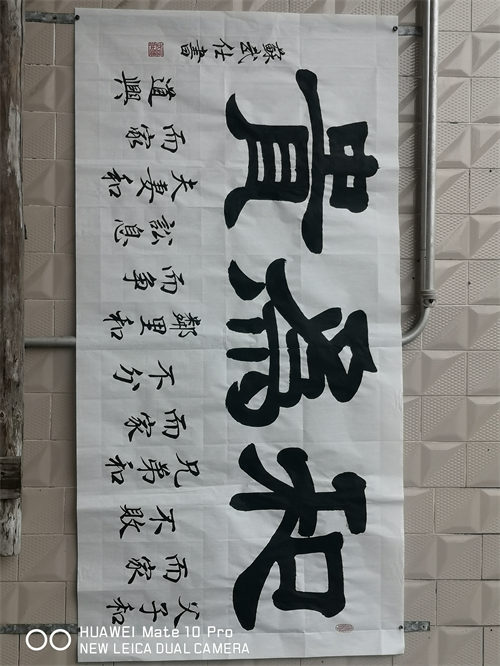 和為貴
父子和
而家
不敗
兄弟和
而家
不分
鄰里和
而争
訟息
夫妻和
而家
道興
蘇武仕書
HUAWEI Mate 10 Pro
NEW LEICA DUAL CAMERA